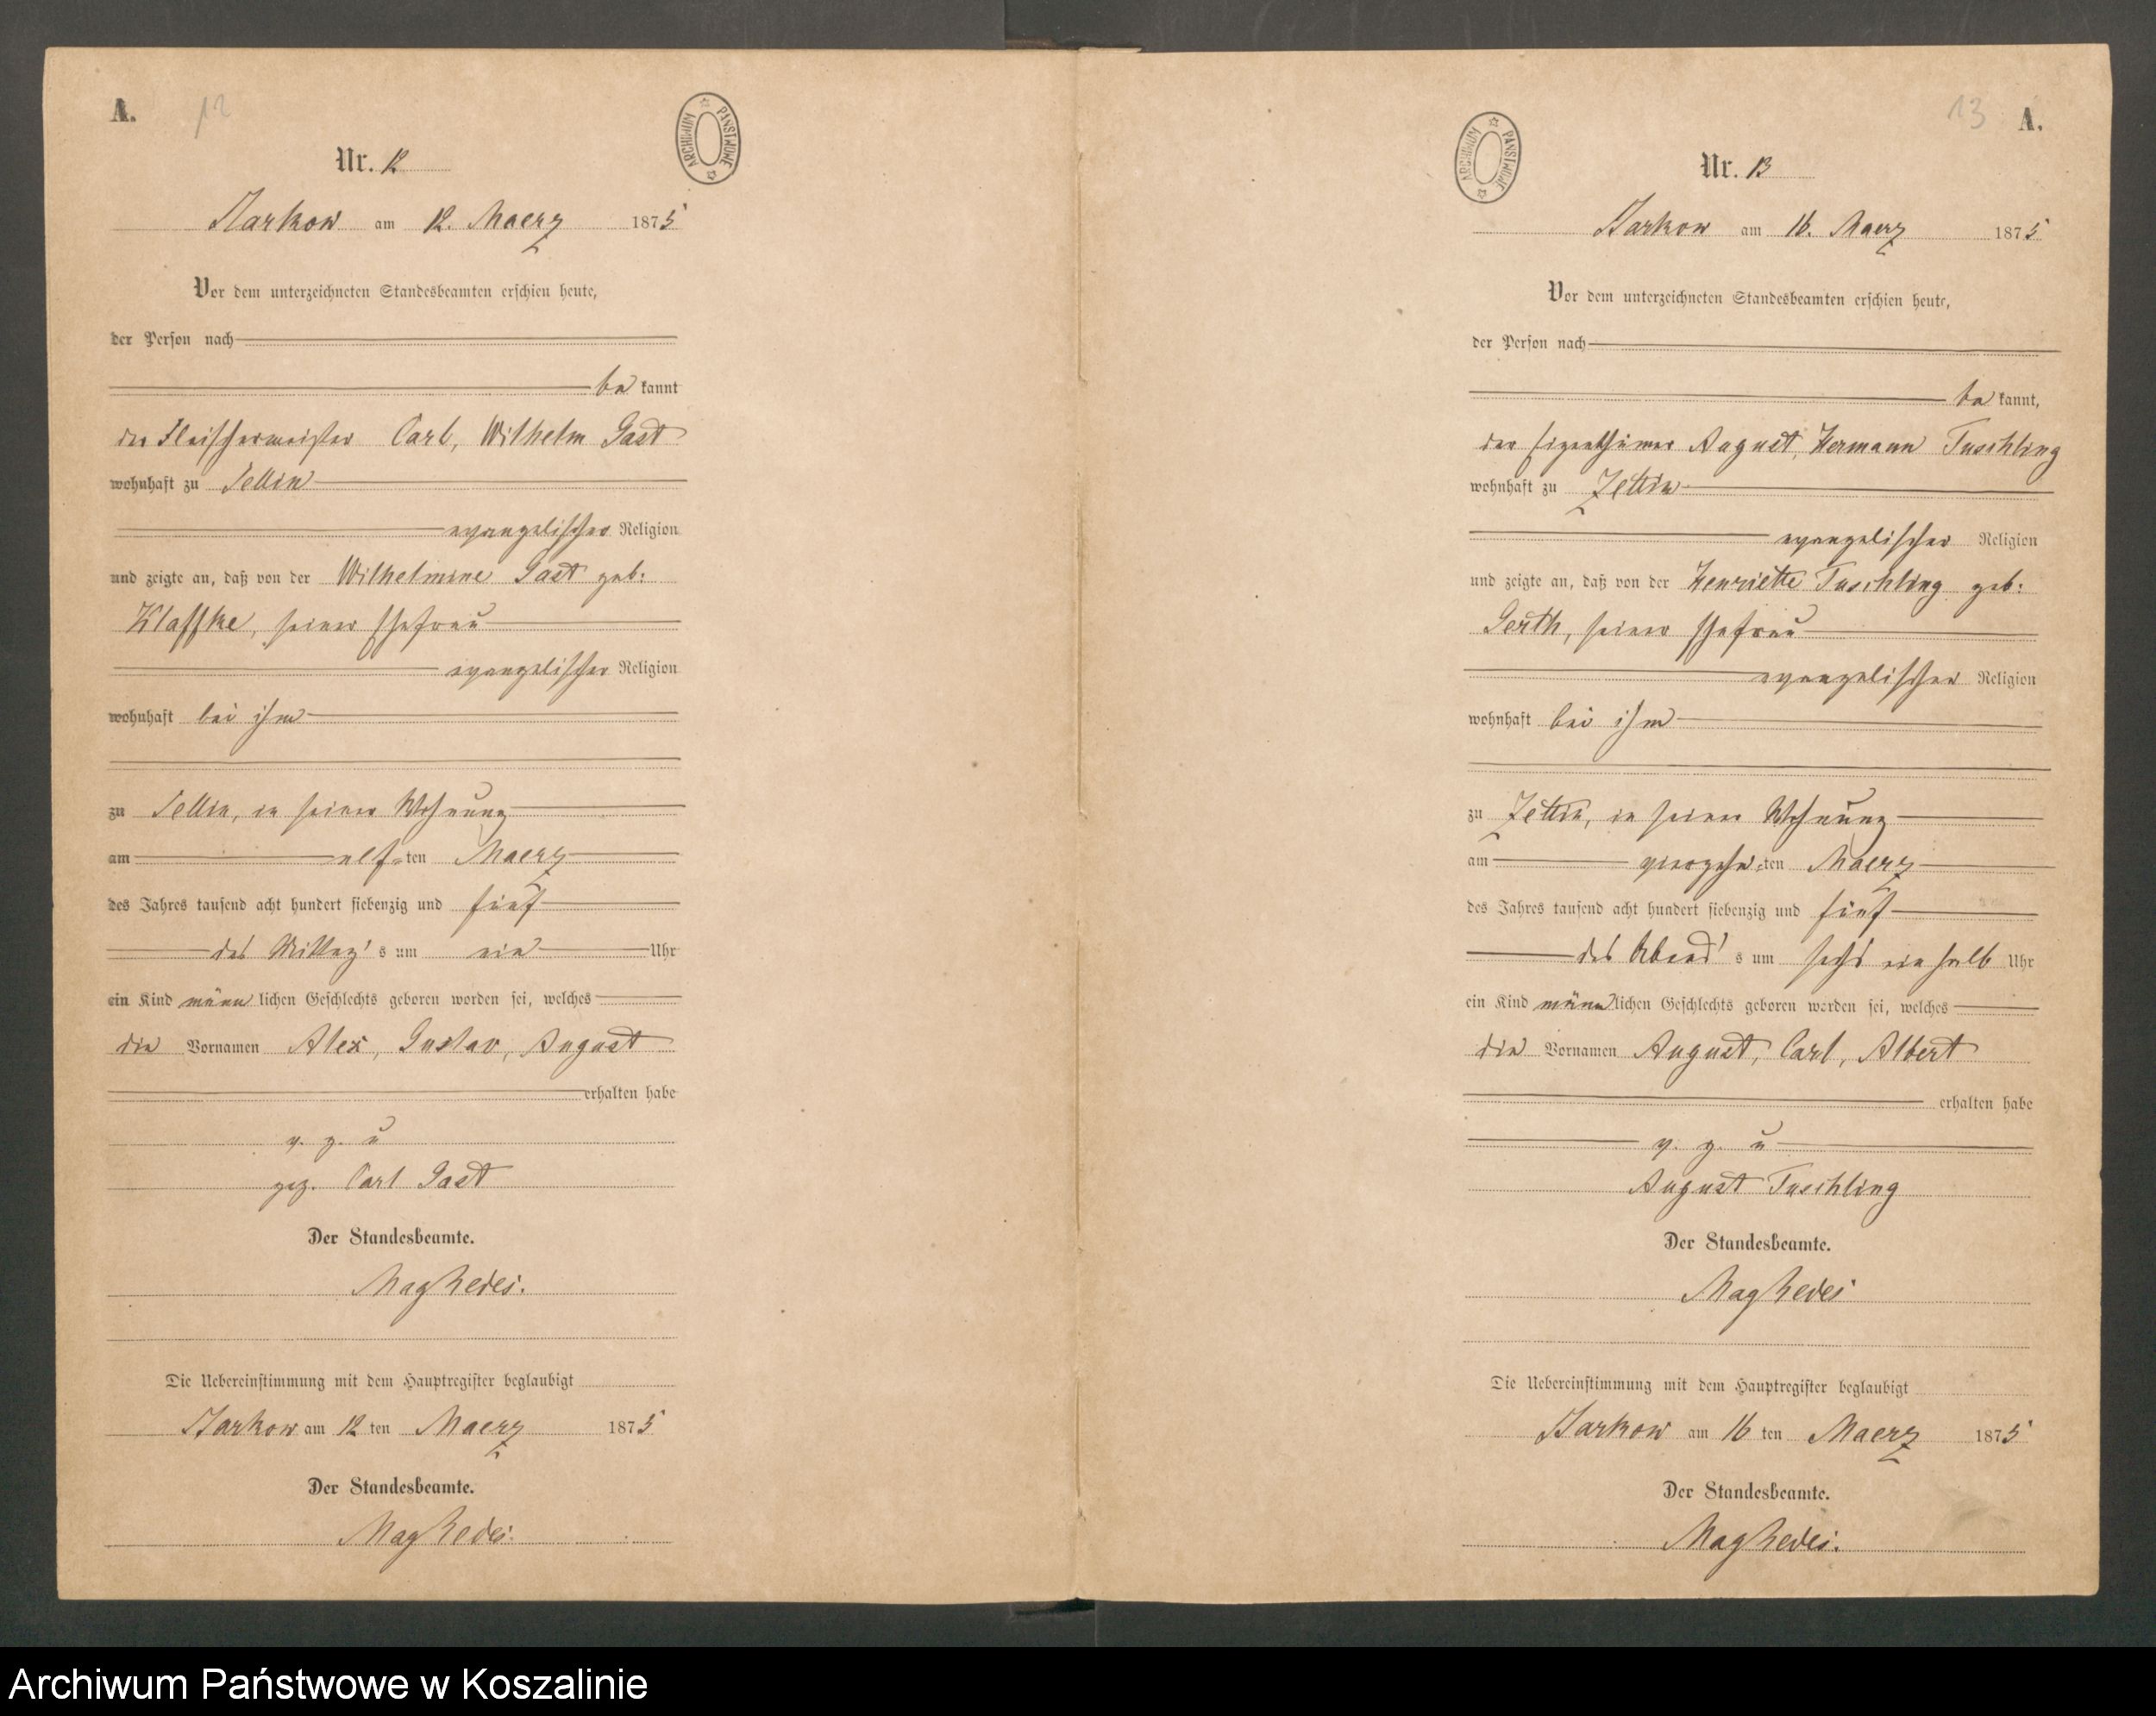 A.
12
ARCHIWUM PAŃSTWOWE
Nr. 12
Starkow am 12. Maerz 1875
Vor dem unterzeichneten Standesbeamten erschien heute,
der Person nach
be kannt
der Fleischermeister Carl, Wilhelm Gast
wohnhaft zu Sellin
evangelischer Religion
und zeigte an, daß von der Wilhelmine Gast geb:
Klaffke, seiner Ehefrau
evangelischer Religion
wohnhaft bei ihm
zu Sellin, in seiner Wohnung
am elf-ten Maerz
des Jahres tausend acht hundert siebenzig und fünf
des Mittag's um ein Uhr
ein Kind männlichen Geschlechts geboren worden sei, welches
die Vornamen Alex, Gustav, August
erhalten habe
v. g. u
gez. Carl Gast
Der Standesbeamte.
Die Uebereinstimmung mit dem Hauptregister beglaubigt
Starkow am 12 ten Maerz 1875
Der Standesbeamte.
13 A.
ARCHIWUM PAŃSTWOWE
Nr. 13
Starkow am 16. Maerz 1875
Vor dem unterzeichneten Standesbeamten erschien heute,
der Person nach
be kannt,
der Eigenthümer August, Hermann Tuschling
wohnhaft zu Zettin
evangelischer Religion
und zeigte an, daß von der Henriette Tuschling geb:
Gerth, seiner Ehefrau
evangelischer Religion
wohnhaft bei ihm
zu Zettin, in seiner Wohnung
am vierzehn-ten Maerz
des Jahres tausend acht hundert siebenzig und fünf
des Abend's um sechs ein halb Uhr
ein Kind männlichen Geschlechts geboren worden sei, welches
die Vornamen August, Carl, Albert
erhalten habe
v. g. u
August Tuschling
Der Standesbeamte.
Die Uebereinstimmung mit dem Hauptregister beglaubigt
Starkow am 16 ten Maerz 1875
Der Standesbeamte.
Archiwum Państwowe w Koszalinie